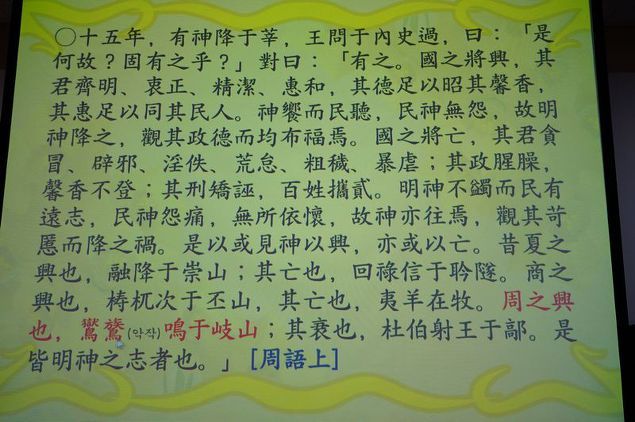 〇十五年，有神降于莘，王問于內史過，曰：「是
何故？固有之乎？」對曰：「有之。國之將興，其
君齊明、衷正、精潔、惠和，其德足以昭其馨香，
其惠足以同其民人。神饗而民聽，民神無怨，故明
神降之，觀其政德而均布福焉。國之將亡，其君貪
冒、辟邪、淫佚、荒怠、粗穢、暴虐；其政腥臊，
馨香不登；其刑矯誣，百姓攜貳。明神不蠲而民有
遠志，民神怨痛，無所依懷，故神亦往焉，觀其苛
慝而降之禍。是以或見神以興，亦或以亡。昔夏之
興也，融降于崇山；其亡也，回祿信于聆隧。商之
興也，檮杌次于丕山，其亡也，夷羊在牧。周之興
也，鸑鷟(악작)鳴于岐山；其衰也，杜伯射王于鄗。是
皆明神之志者也。」[周語上]